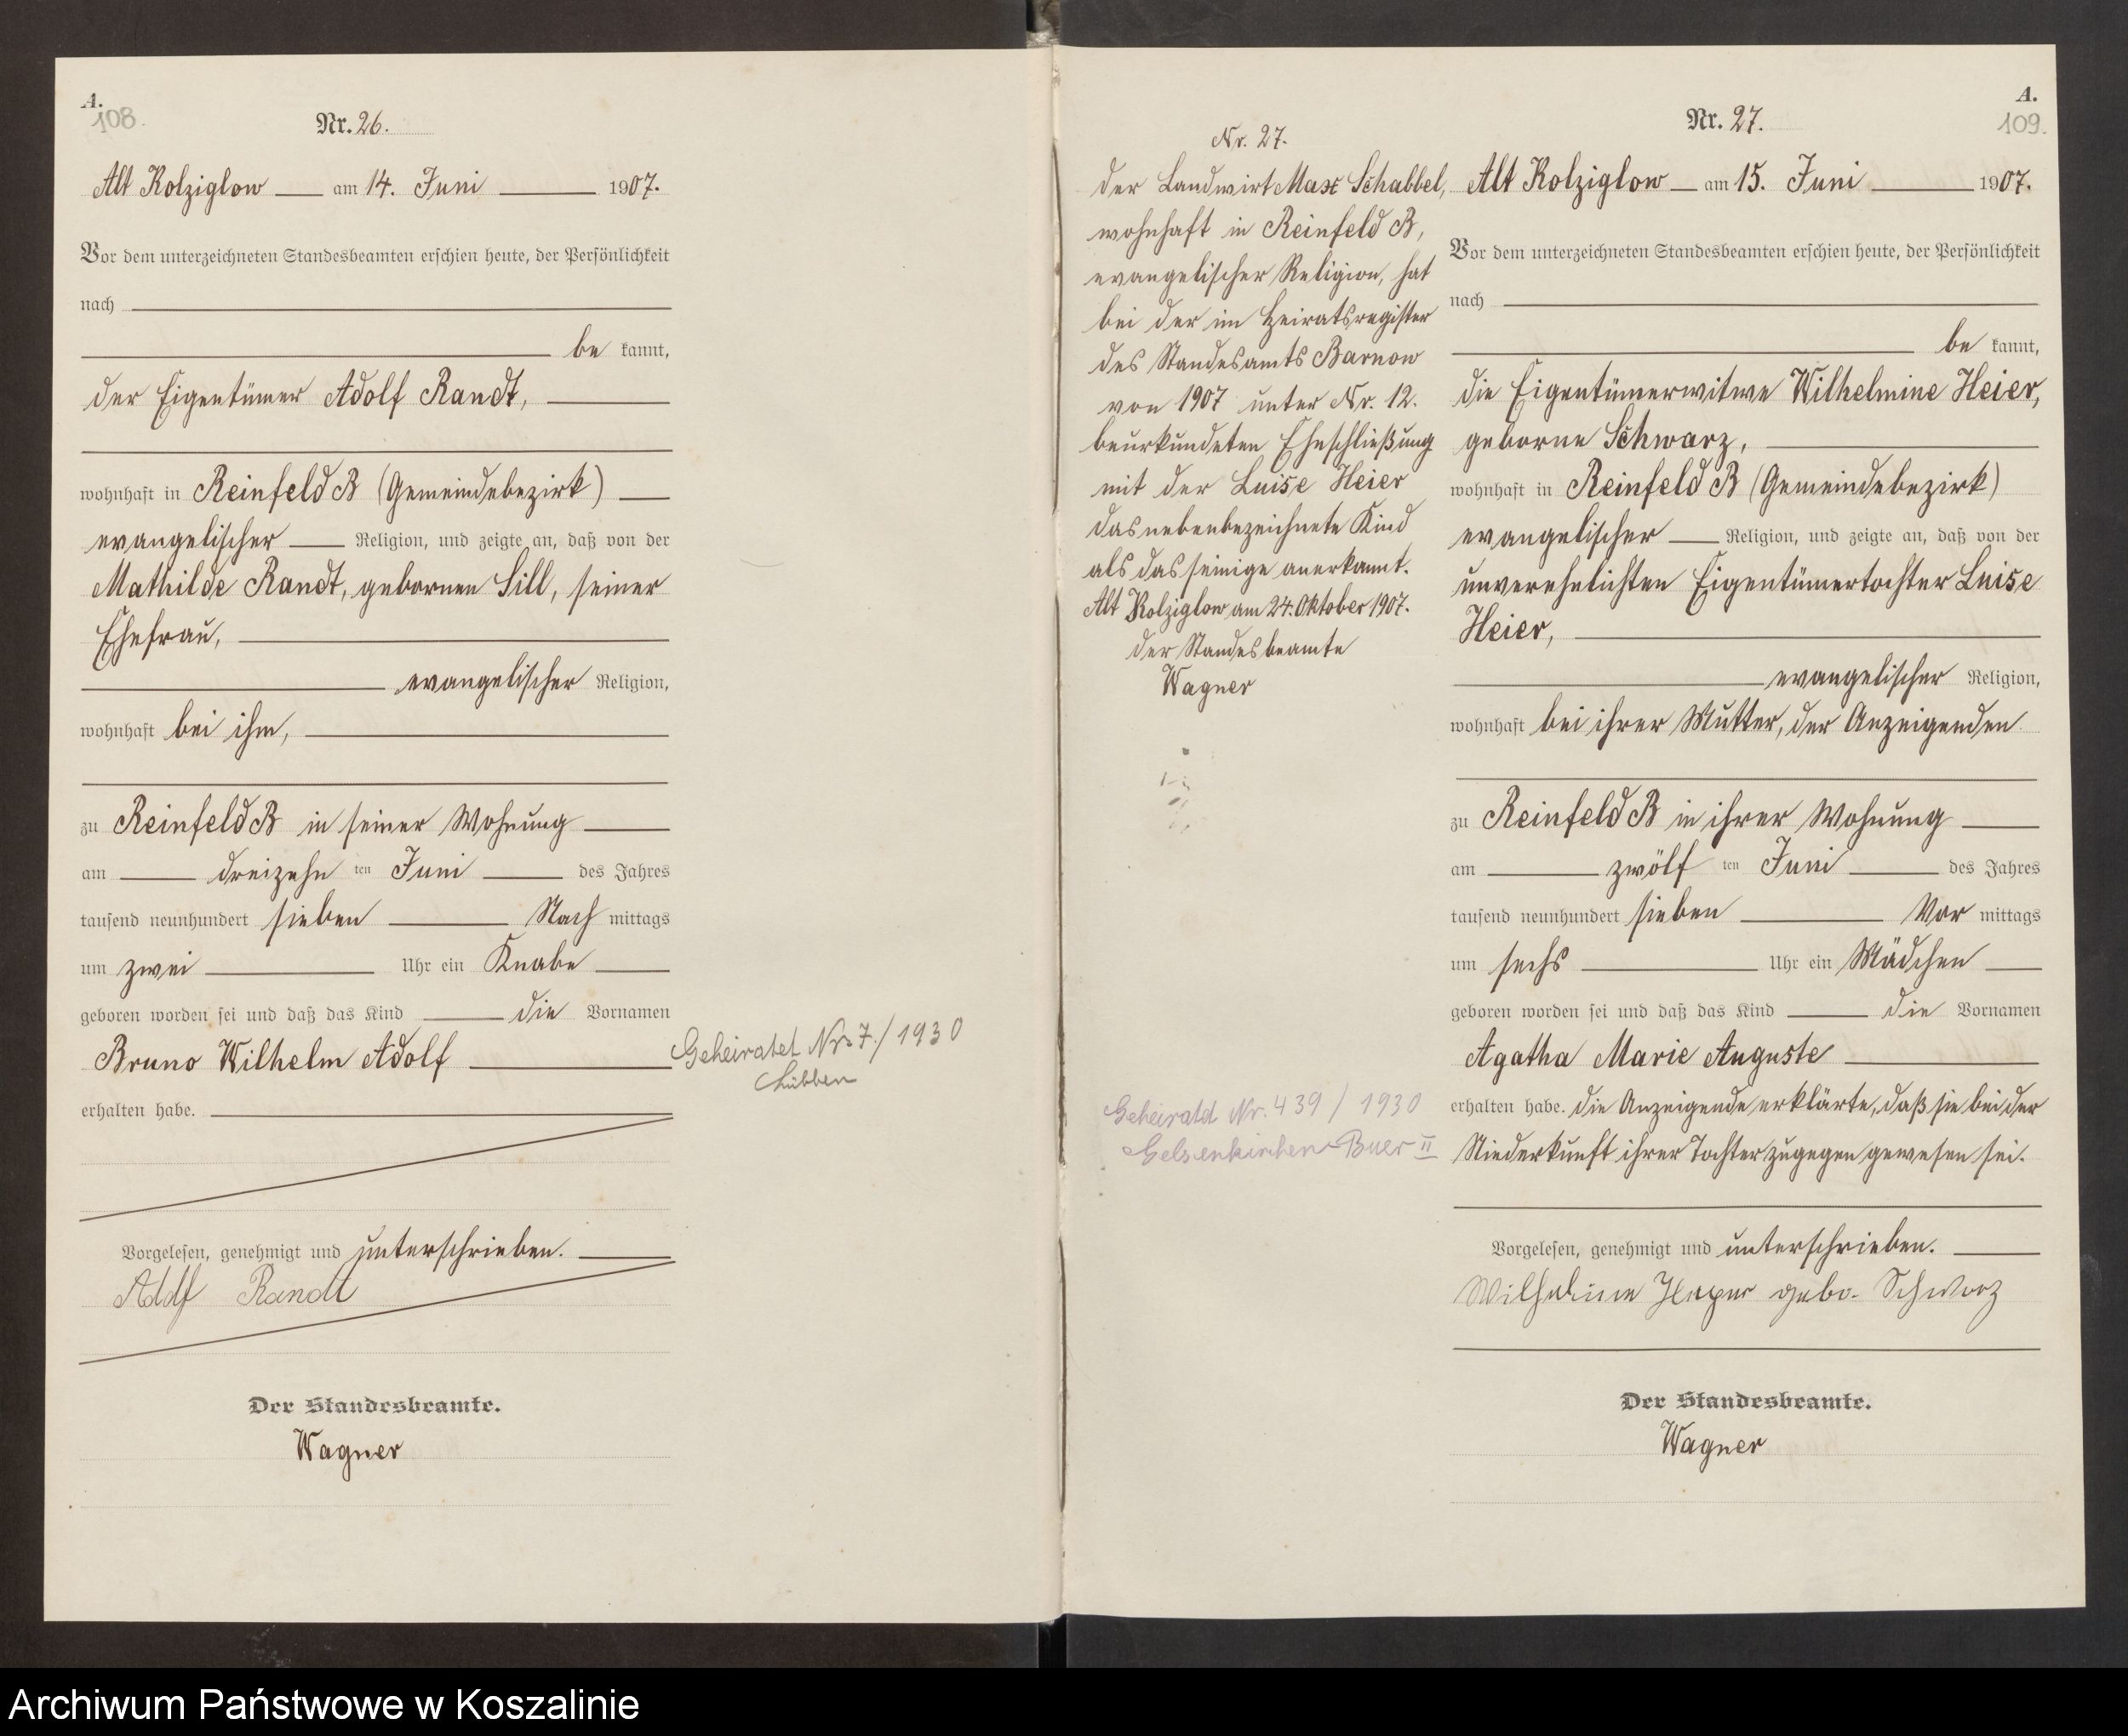 A.
108.
Nr. 26.
Alt Kolziglow am 14. Juni 1907.
Vor dem unterzeichneten Standesbeamten erschien heute, der Persönlichkeit
nach
be kannt,
der Eigentümer Adolf Randt,
wohnhaft in Reinfeld B (Gemeindebezirk)
evangelischer Religion, und zeigte an, daß von der
Mathilde Randt, gebornen Sill, seiner
Ehefrau,
evangelischer Religion,
wohnhaft bei ihm,
zu Reinfeld B in seiner Wohnung
am dreizehn ten Juni des Jahres
tausend neunhundert sieben Nach mittags
um zwei Uhr ein Knabe
geboren worden sei und daß das Kind die Vornamen
Bruno Wilhelm Adolf
erhalten habe.
Vorgelesen, genehmigt und unterschrieben.
Adolf Randt
Der Standesbeamte.
Wagner
Geheiratet Nr. 7./1930
Lübben
Nr. 27.
Der Landwirt Max Schabbel,
wohnhaft in Reinfeld B,
evangelischer Religion, hat
bei der im Heiratsregister
des Standesamts Barnow
von 1907 unter Nr. 12.
beurkundeten Eheschließung
mit der Luise Heier
das nebenbezeichnete Kind
als das seinige anerkannt.
Alt Kolziglow am 24. Oktober 1907.
Der Standesbeamte
Wagner
Geheiratet Nr. 439 / 1930
Gelsenkirchen-Buer II
A.
109.
Nr. 27.
Alt Kolziglow am 15. Juni 1907.
Vor dem unterzeichneten Standesbeamten erschien heute, der Persönlichkeit
nach
be kannt,
die Eigentümerwitwe Wilhelmine Heier,
geborne Schwarz,
wohnhaft in Reinfeld B (Gemeindebezirk)
evangelischer Religion, und zeigte an, daß von der
unverehelichten Eigentümertochter Luise
Heier,
evangelischer Religion,
wohnhaft bei ihrer Mutter, der Anzeigenden
zu Reinfeld B in ihrer Wohnung
am zwölf ten Juni des Jahres
tausend neunhundert sieben Vor mittags
um sechs Uhr ein Mädchen
geboren worden sei und daß das Kind die Vornamen
Agatha Marie Auguste
erhalten habe. Die Anzeigende erklärte, daß sie bei der
Niederkunft ihrer Tochter zugegen gewesen sei.
Vorgelesen, genehmigt und unterschrieben.
Wilhelmine Heyer gebo. Schwarz
Der Standesbeamte.
Wagner
Archiwum Państwowe w Koszalinie